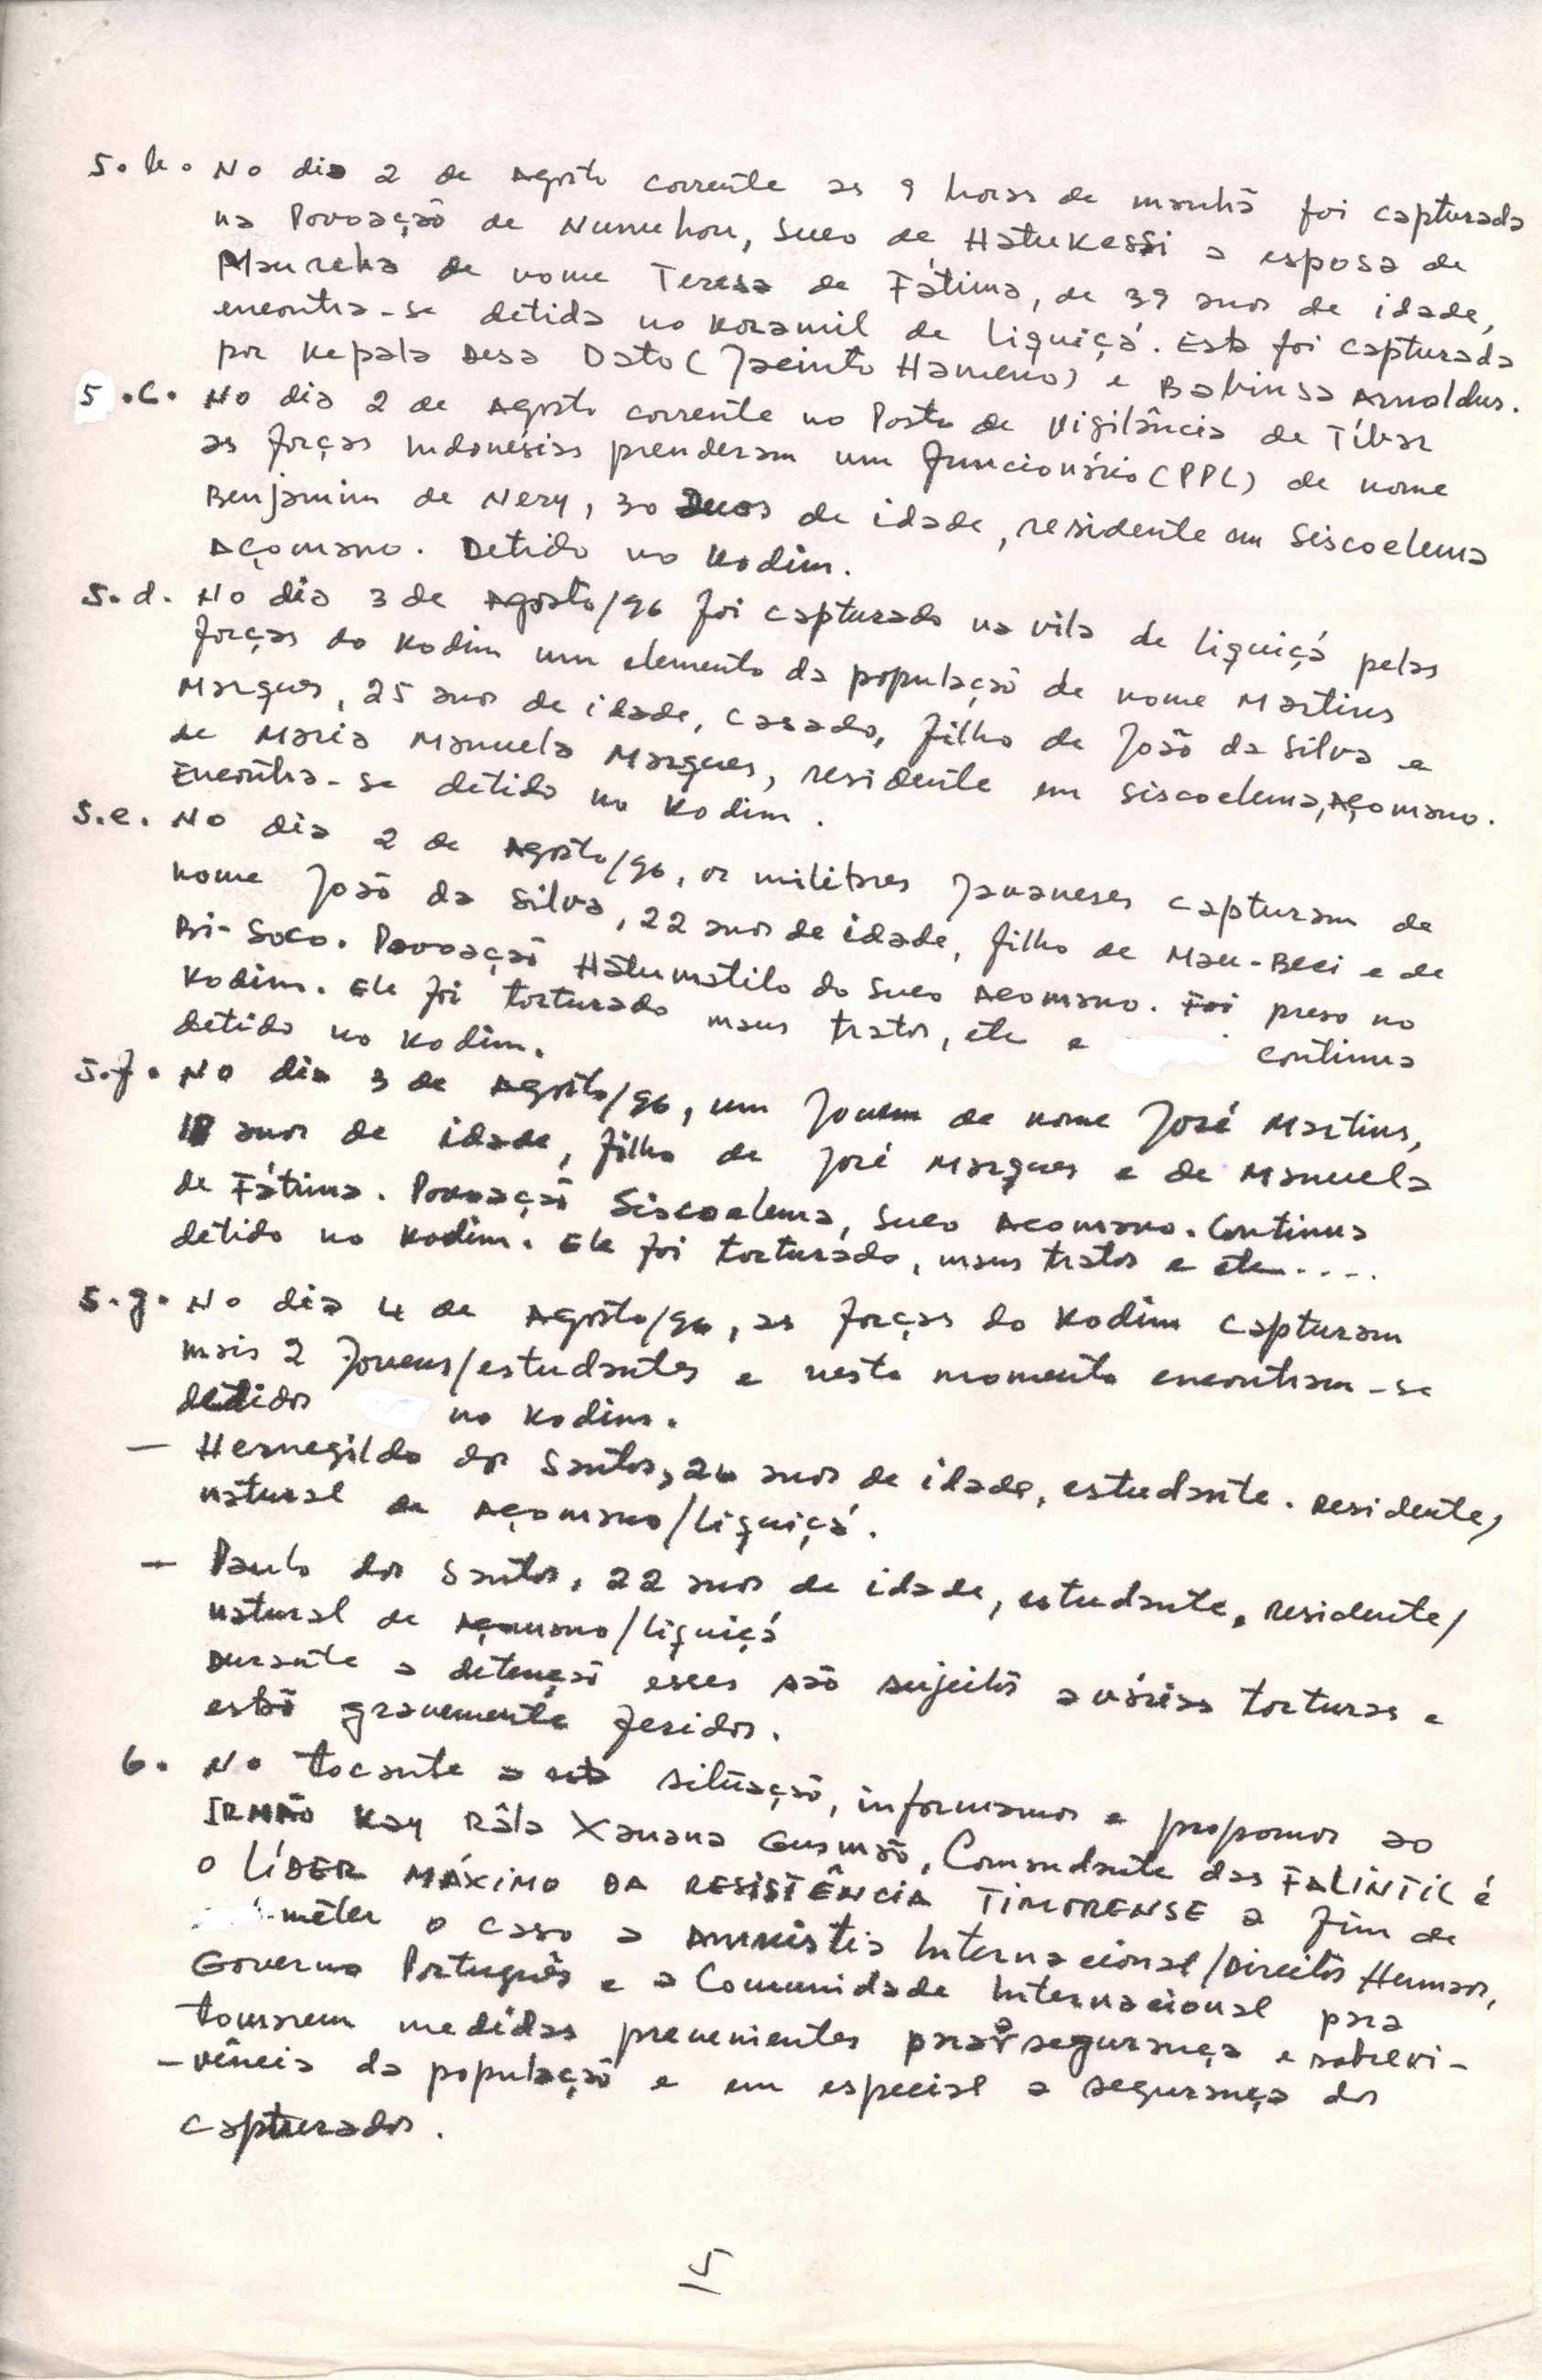 5.b. No dia 2 de Agosto corrente as 9 horas de manhã foi capturada
na Povoação de Nunuhou, Suco de Hatukessi a esposa de
Maureha de nome Teresa de Fátima, de 39 anos de idade,
encontra-se detida no Koramil de Liquiçá. Esta foi capturada
por Kepala Desa Dato (Jacinto Hameno) e Babinsa Arnoldus.
5.c. No dia 2 de Agosto corrente no Posto de Vigilância de Tíbar
as forças Indonésias prenderam um funcionário (PPL) de nome
Benjamim de Nery, 30 anos de idade, residente em Siscoelema
Açomano. Detido no Kodim.
5.d. No dia 3 de Agosto/96 foi capturado na vila de Liquiçá pelas
forças do Kodim um elemento da população de nome Martins
Marques, 25 anos de idade, casado, filho de João da Silva e
de Maria Manuela Marques, residente em Siscoelema, Açomano.
Encontra-se detido no Kodim.
5.e. No dia 2 de Agosto/96, os militares Javaneses capturam de
nome João da Silva, 22 anos de idade, filho de Mau-Beci e de
Bi-Soco. Povoação Hatumatilo do Suco Acomano. Foi preso no
Kodim. Ele foi torturado maus tratos, etc e continua
detido no Kodim.
5.f. No dia 3 de Agosto/96, um Jovem de nome José Martins,
anos de idade, filho de José Marques e de Manuela
de Fátima. Povoação Siscoelema, Suco Acomano. Continua
detido no Kodim. Ele foi torturado, maus tratos e etc....
5.g. No dia 4 de Agosto/96, as forças do Kodim capturam
mais 2 Jovens/estudantes e neste momento encontram-se
detidos no Kodim.
— Hernegildo dos Santos, 26 anos de idade, estudante. Residente,
natural de Açomano/Liquiçá.
— Paulo dos Santos, 22 anos de idade, estudante, Residente/
natural de Açomano/Liquiçá
Durante a detenção esses são sujeitos a várias torturas e
estão gravemente feridos.
6. No tocante a situação, informamos e propomos ao
IRMÃO Kay Râla Xanana Gusmão, Comandante das FALINTIL é
O LÍDER MÁXIMO DA RESISTÊNCIA TIMORENSE a fim de
meter o caso a Amnistia Internacional/Direitos Humanos,
Governo Português e a Comunidade Internacional para
tomarem medidas prevenientes para a segurança e sobrevi-
-vência da população e em especial a segurança dos
capturados.
5